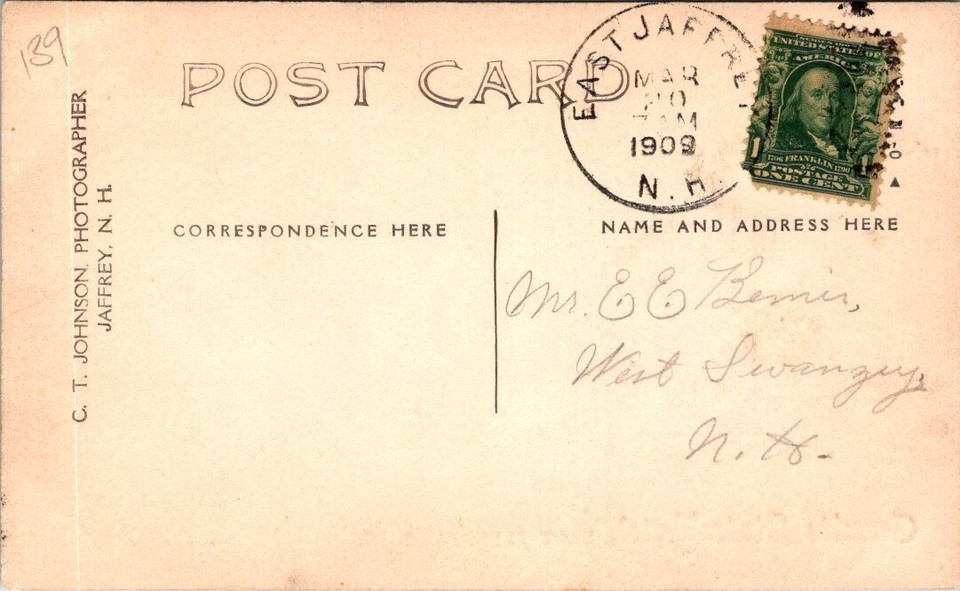 139
POST CARD
EAST JAFFREY
MAR
20
7 AM
1909
N.H.
UNITED STATES OF
AMERICA
1
1706 FRANKLIN 1790
POSTAGE
ONE CENT
C. T. JOHNSON, PHOTOGRAPHER
JAFFREY, N. H.
CORRESPONDENCE HERE
NAME AND ADDRESS HERE
Mr. E E Bemis,
West Swanzey,
N. H.